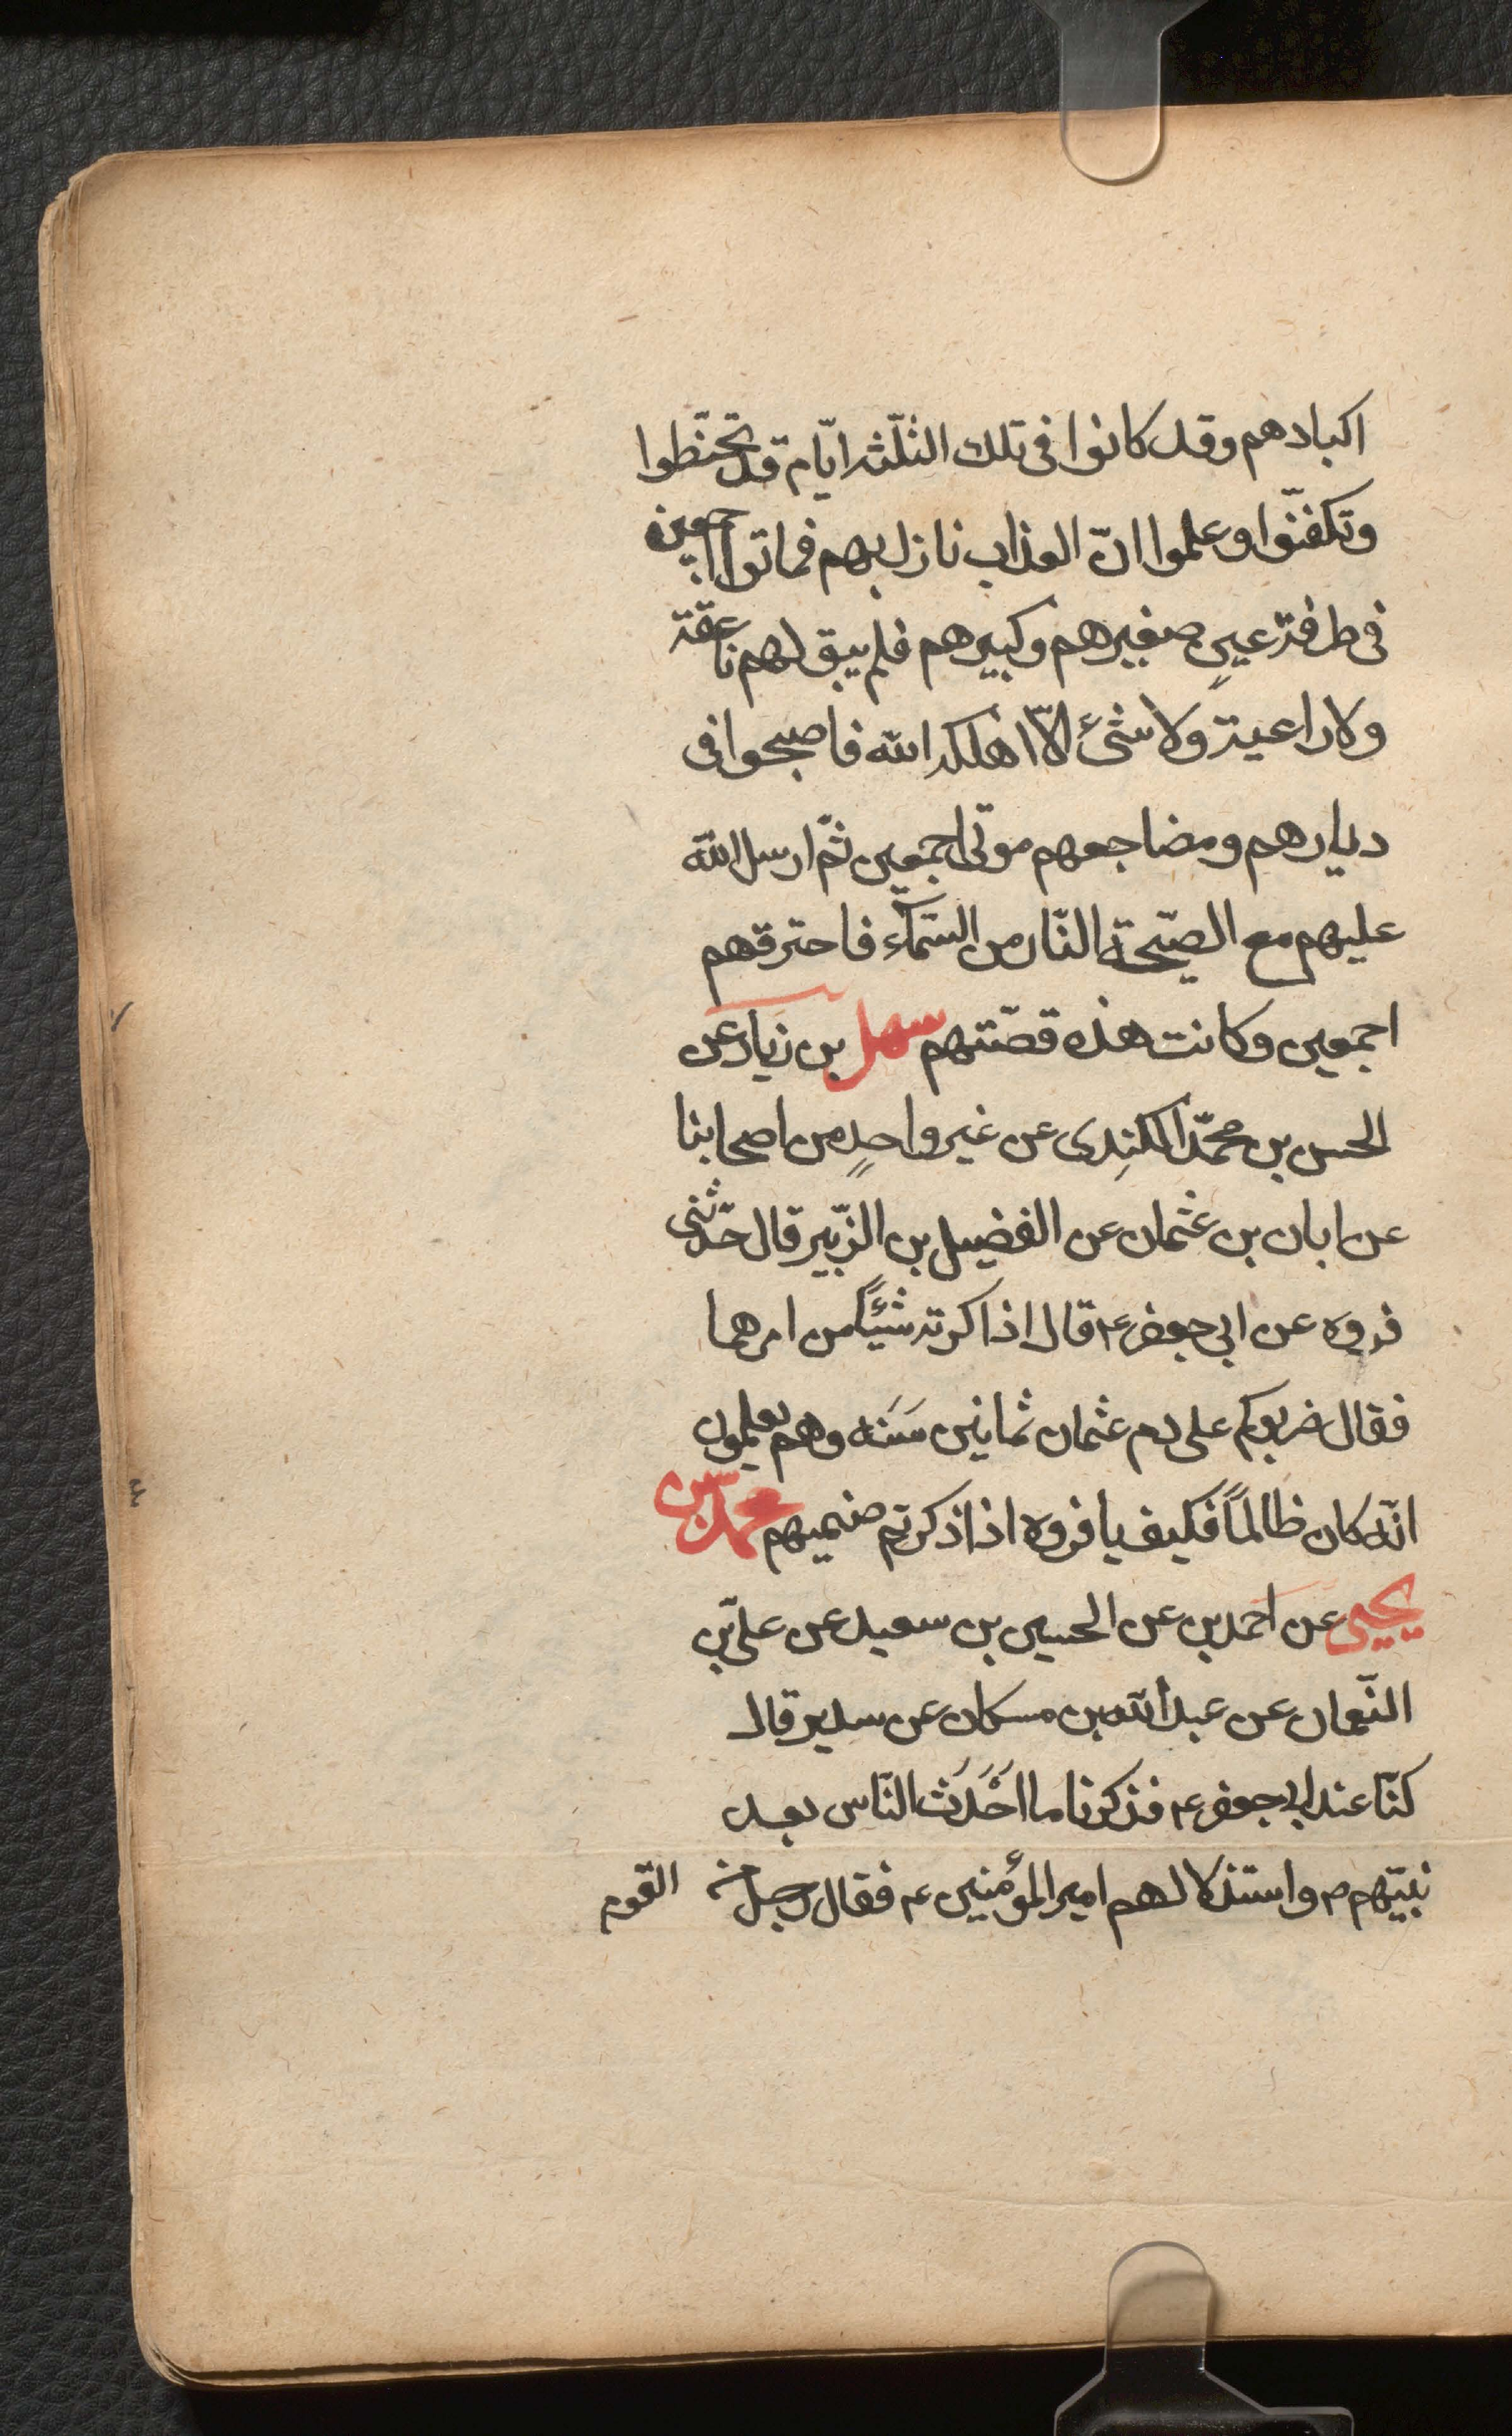 اكبادهم وقد كانوا فى تلك الثلثه ايّام قد تحنّطوا
وتكفنّوا وعلموا انّ العذاب نازل بهم فماتوا اجمعين
فى طرفة عينٍ صغيرهم وكبيرهم فلم يبق لهم ناعقة
ولا راعية ولا شئ الّا اهلكه الله فاصبحوا فى
ديارهم ومضاجعهم موتى اجمعين ثمّ ارسل الله
عليهم مع الصيّحة النّار من السّمآء فاحترقهم
اجمعين وكانت هذه قصّتهم سهل بن زياد عن
الحسن بن محمّد الكندى عن غير واحدٍ من اصحابنا
عن ابان بن عثمان عن الفضيل بن الزّبير قال حدّثنى
فروه عن ابى جعفر ع قال اذاكرته شيئًا من امرهما
فقال ضربوكم على دم عثمان ثمانين سَنَه وهم يعلمون
انّه كان ظالمًا فكيف يا فروه اذا ذكرتم صنميهم محمد بن
يحيى عن احمد بن عن الحسين بن سعيد عن علىّ بن
النّعمان عن عبد الله بن مسكان عن سدير قال
كنّا عند ابى جعفر ع فذكرنا ما اَحْدَثَ النّاس بعد
نبيّهم ص واستذلالهم امير المؤمنين ع فقال رجل من
القوم